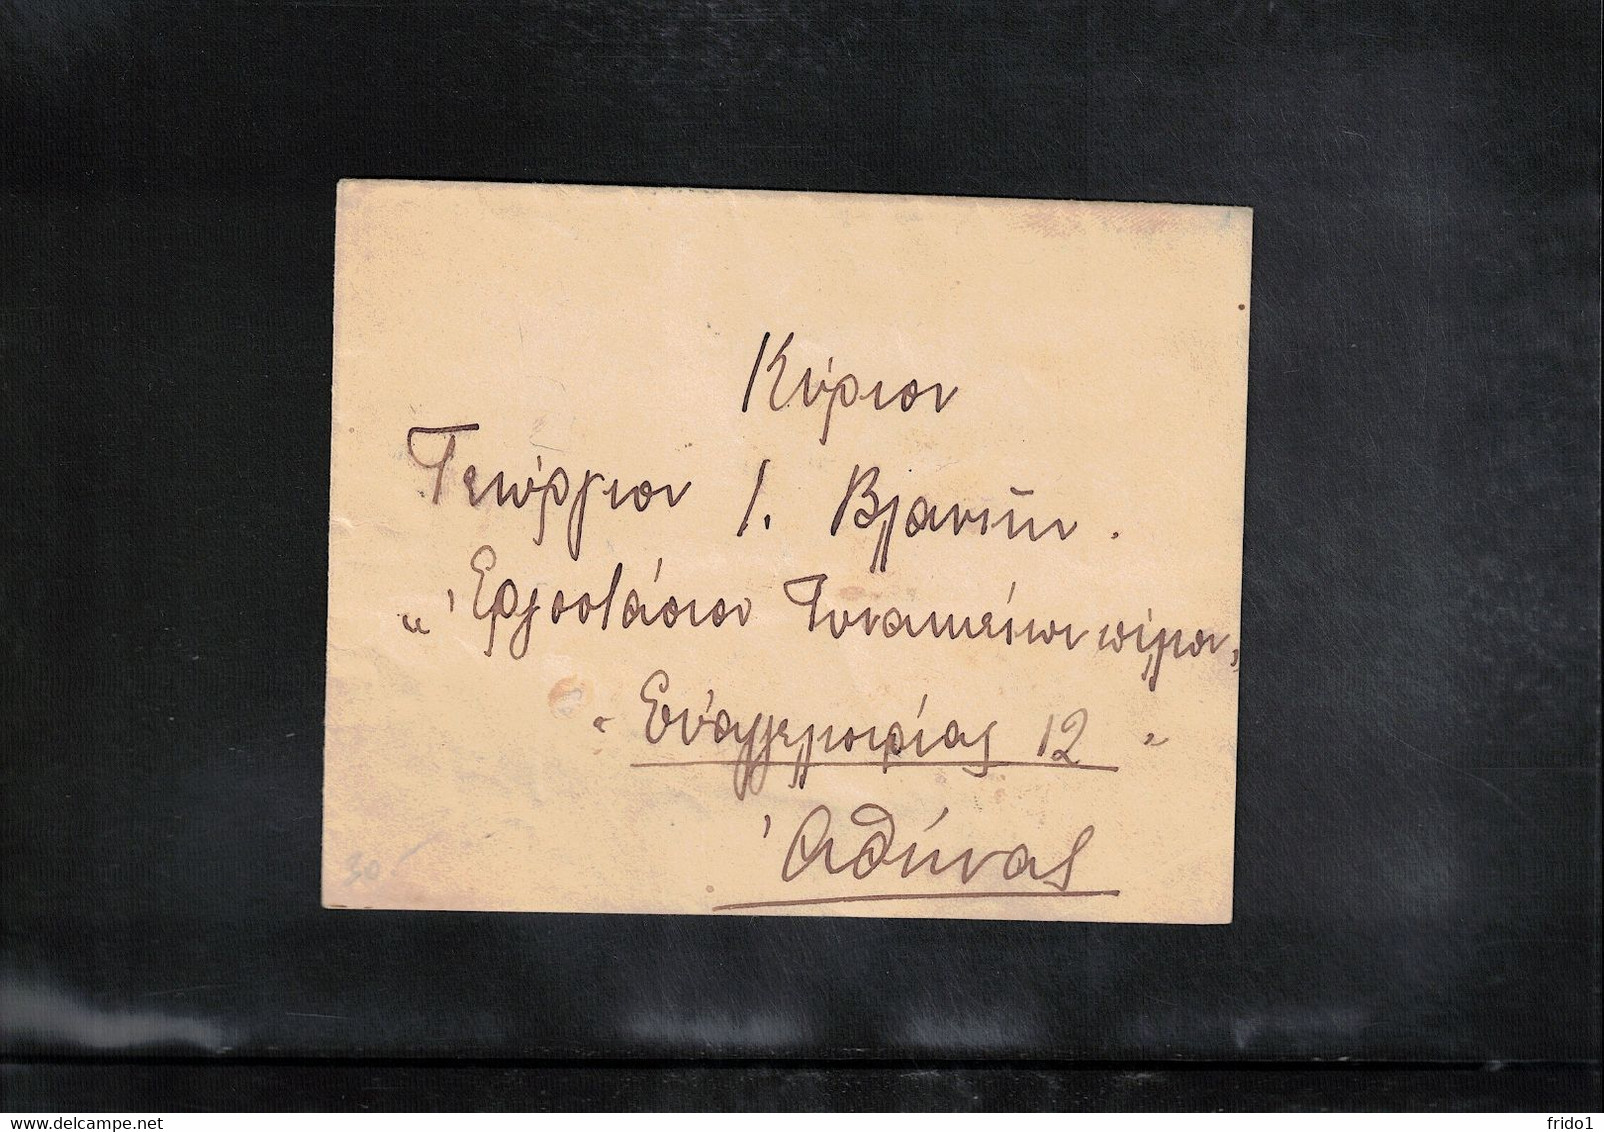 Κύριον
Γεώργιον Ι.
„ Ἐργοστάσιον Γυναικείων πίλων
„ Εὐαγγελιστρίας 12 "
Ἀθήνας
30
delcampe.net
frido1